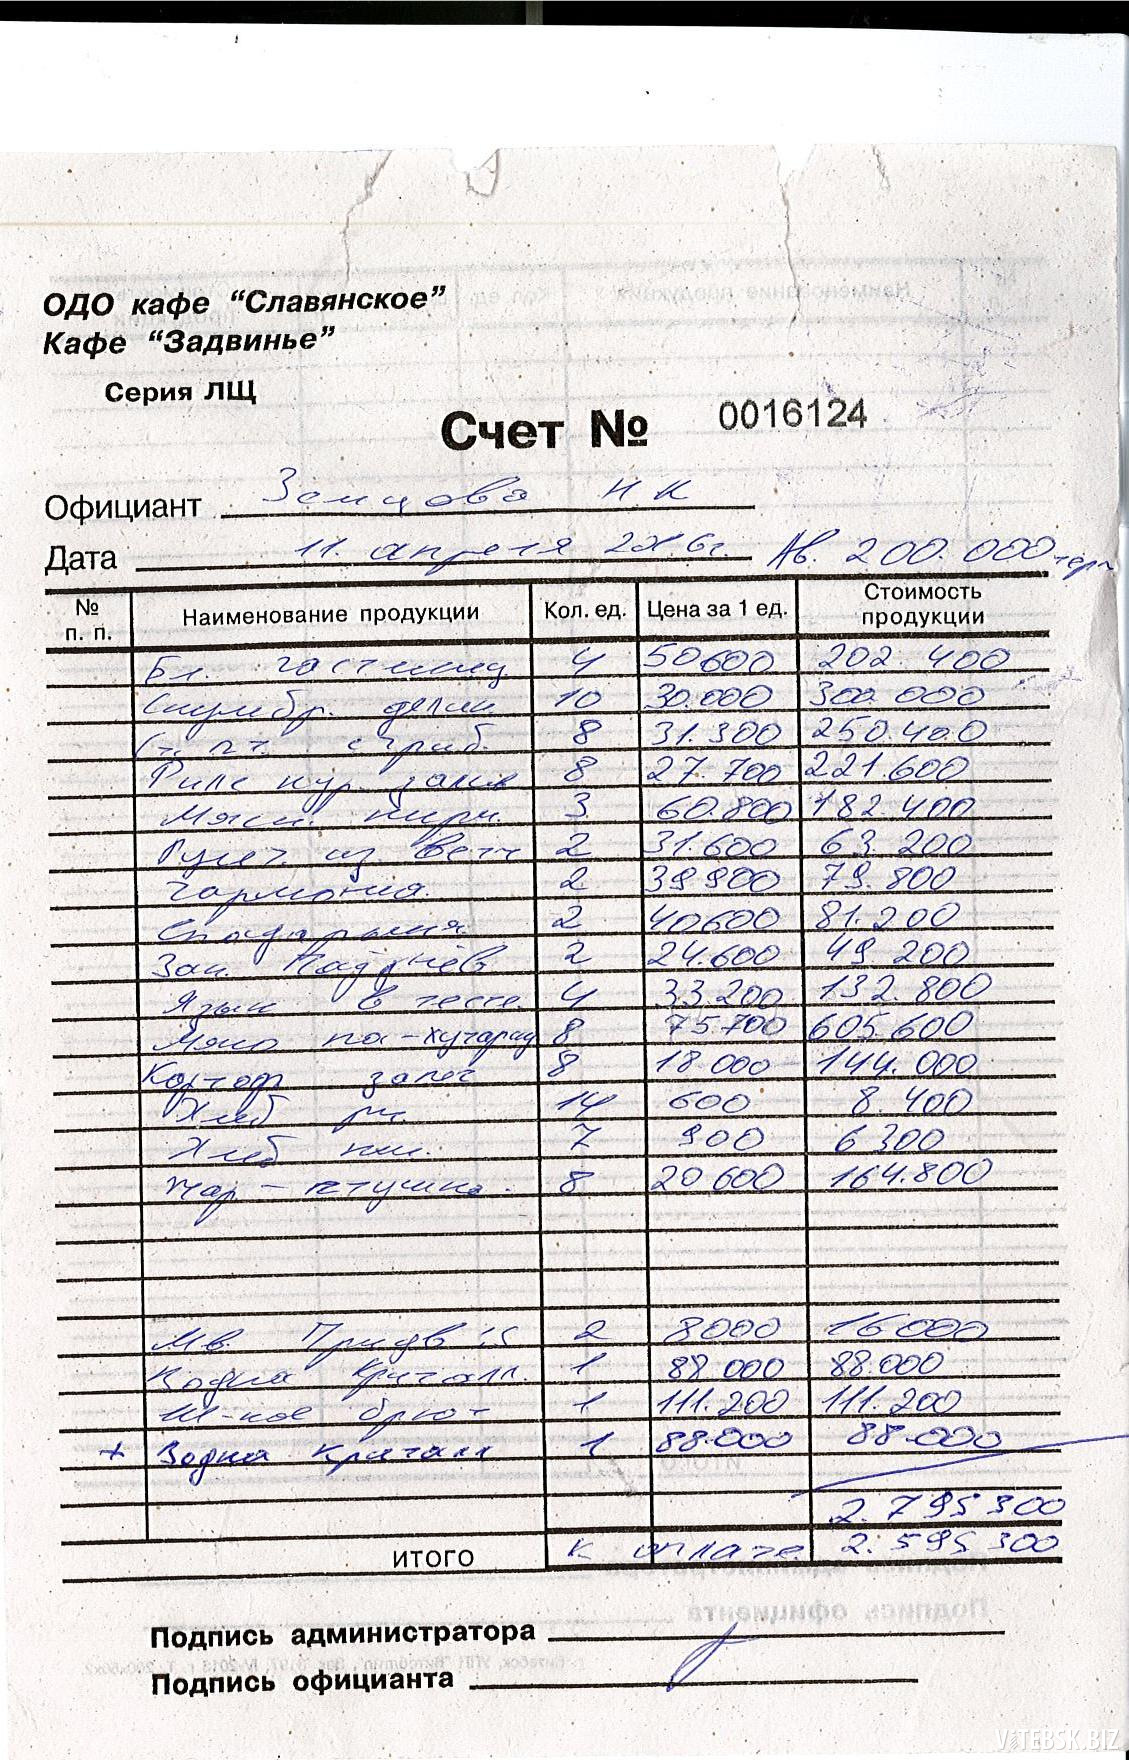 ОДО кафе “Славянское”
Кафе “Задвинье”
Серия ЛЩ
Счет № 0016124
Официант Земцова Н К
Дата 11. апреля 2016г. Ав. 200.000
№ п. п. Наименование продукции Кол. ед. Цена за 1 ед. Стоимость продукции
Бл. 4 50600 202.400
Скумбр. 10 30.000 300.000
с гриб. 8 31.300 250.400
Филе кур. 8 27.700 221.600
Мясн. 3 60.800 182.400
Рулет из ветч 2 31.600 63.200
Гармония 2 39900 79.800
2 40600 81.200
Зак. 2 24.600 49 200
Язык в тесте 4 33.200 132.800
Мясо по-хуторац 8 75.700 605.600
Картоф запеч 8 18.000 144.000
Хлеб рж. 14 600 8.400
Хлеб пш. 7 900 6300
Жар-птушка. 8 20600 164.800
Мв. Придв 1,5 2 8000 16000
Водка Кристалл. 1 88.000 88.000
Ш-кое брют 1 111.200 111.200
+ Водка Кристалл 1 88.000 88.000
2.795300
ИТОГО к оплате 2.595300
Подпись администратора
Подпись официанта
VITEBSK.BIZ